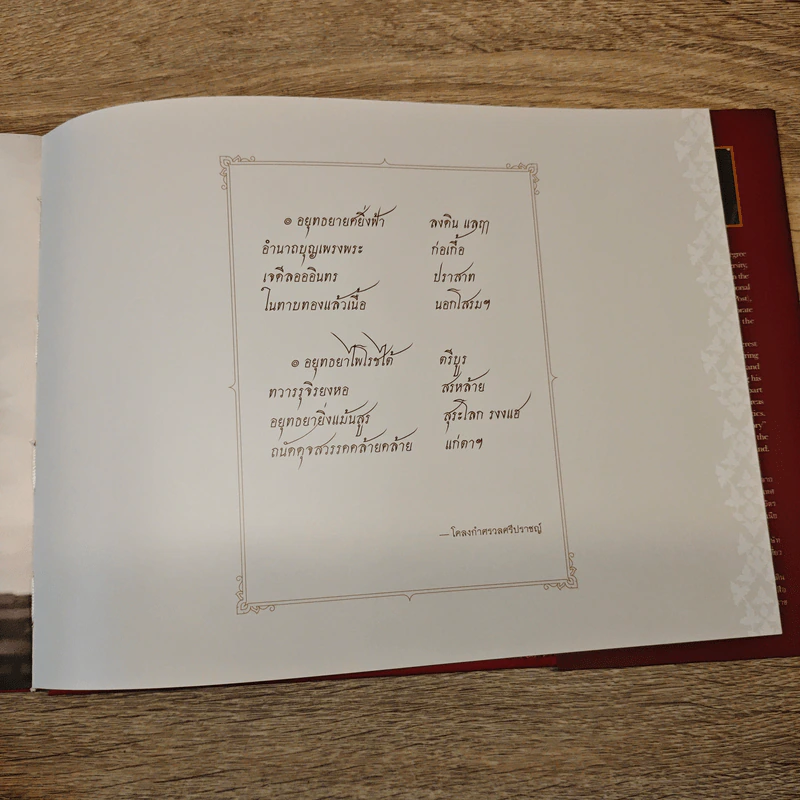 ๏ อยุทธยายศยิ่งฟ้า ลงดิน แลฤๅ
อำนาถบุญเพรงพระ ก่อเกื้อ
เจดีลอออินทร ปราสาท
ในทาบทองแล้วเนื้อ นอกโสรมฯ
๏ อยุทธยาไพโรชใต้ ตรีบูร
ทวารรุจิรยงหอ สรหล้าย
อยุทธยายิ่งแม้นสูร สุระโลก รงงแฮ
ถนัดดุจสวรรคคล้ายคล้าย แก่ตาฯ
— โคลงกำศรวลศรีปราชญ์
egree
ersity,
n the
ional
eare
r the
erest
ring
and
r his
part
reas
tics.
ury"
the
and.